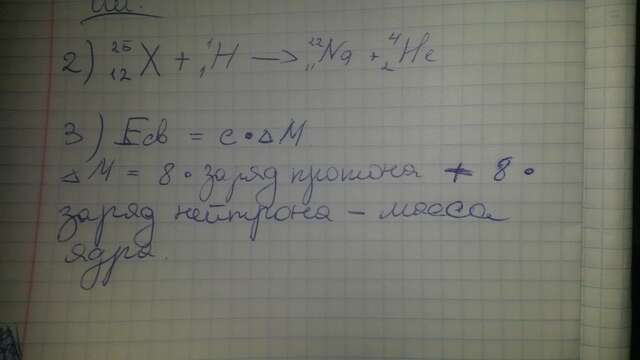 2) ²⁵₁₂X + ¹₁H → ²²₁₁Na + ⁴₂He
3) Есв = с • ΔМ
ΔМ = 8 • заряд протона + 8 •
заряд нейтрона – масса
ядра.